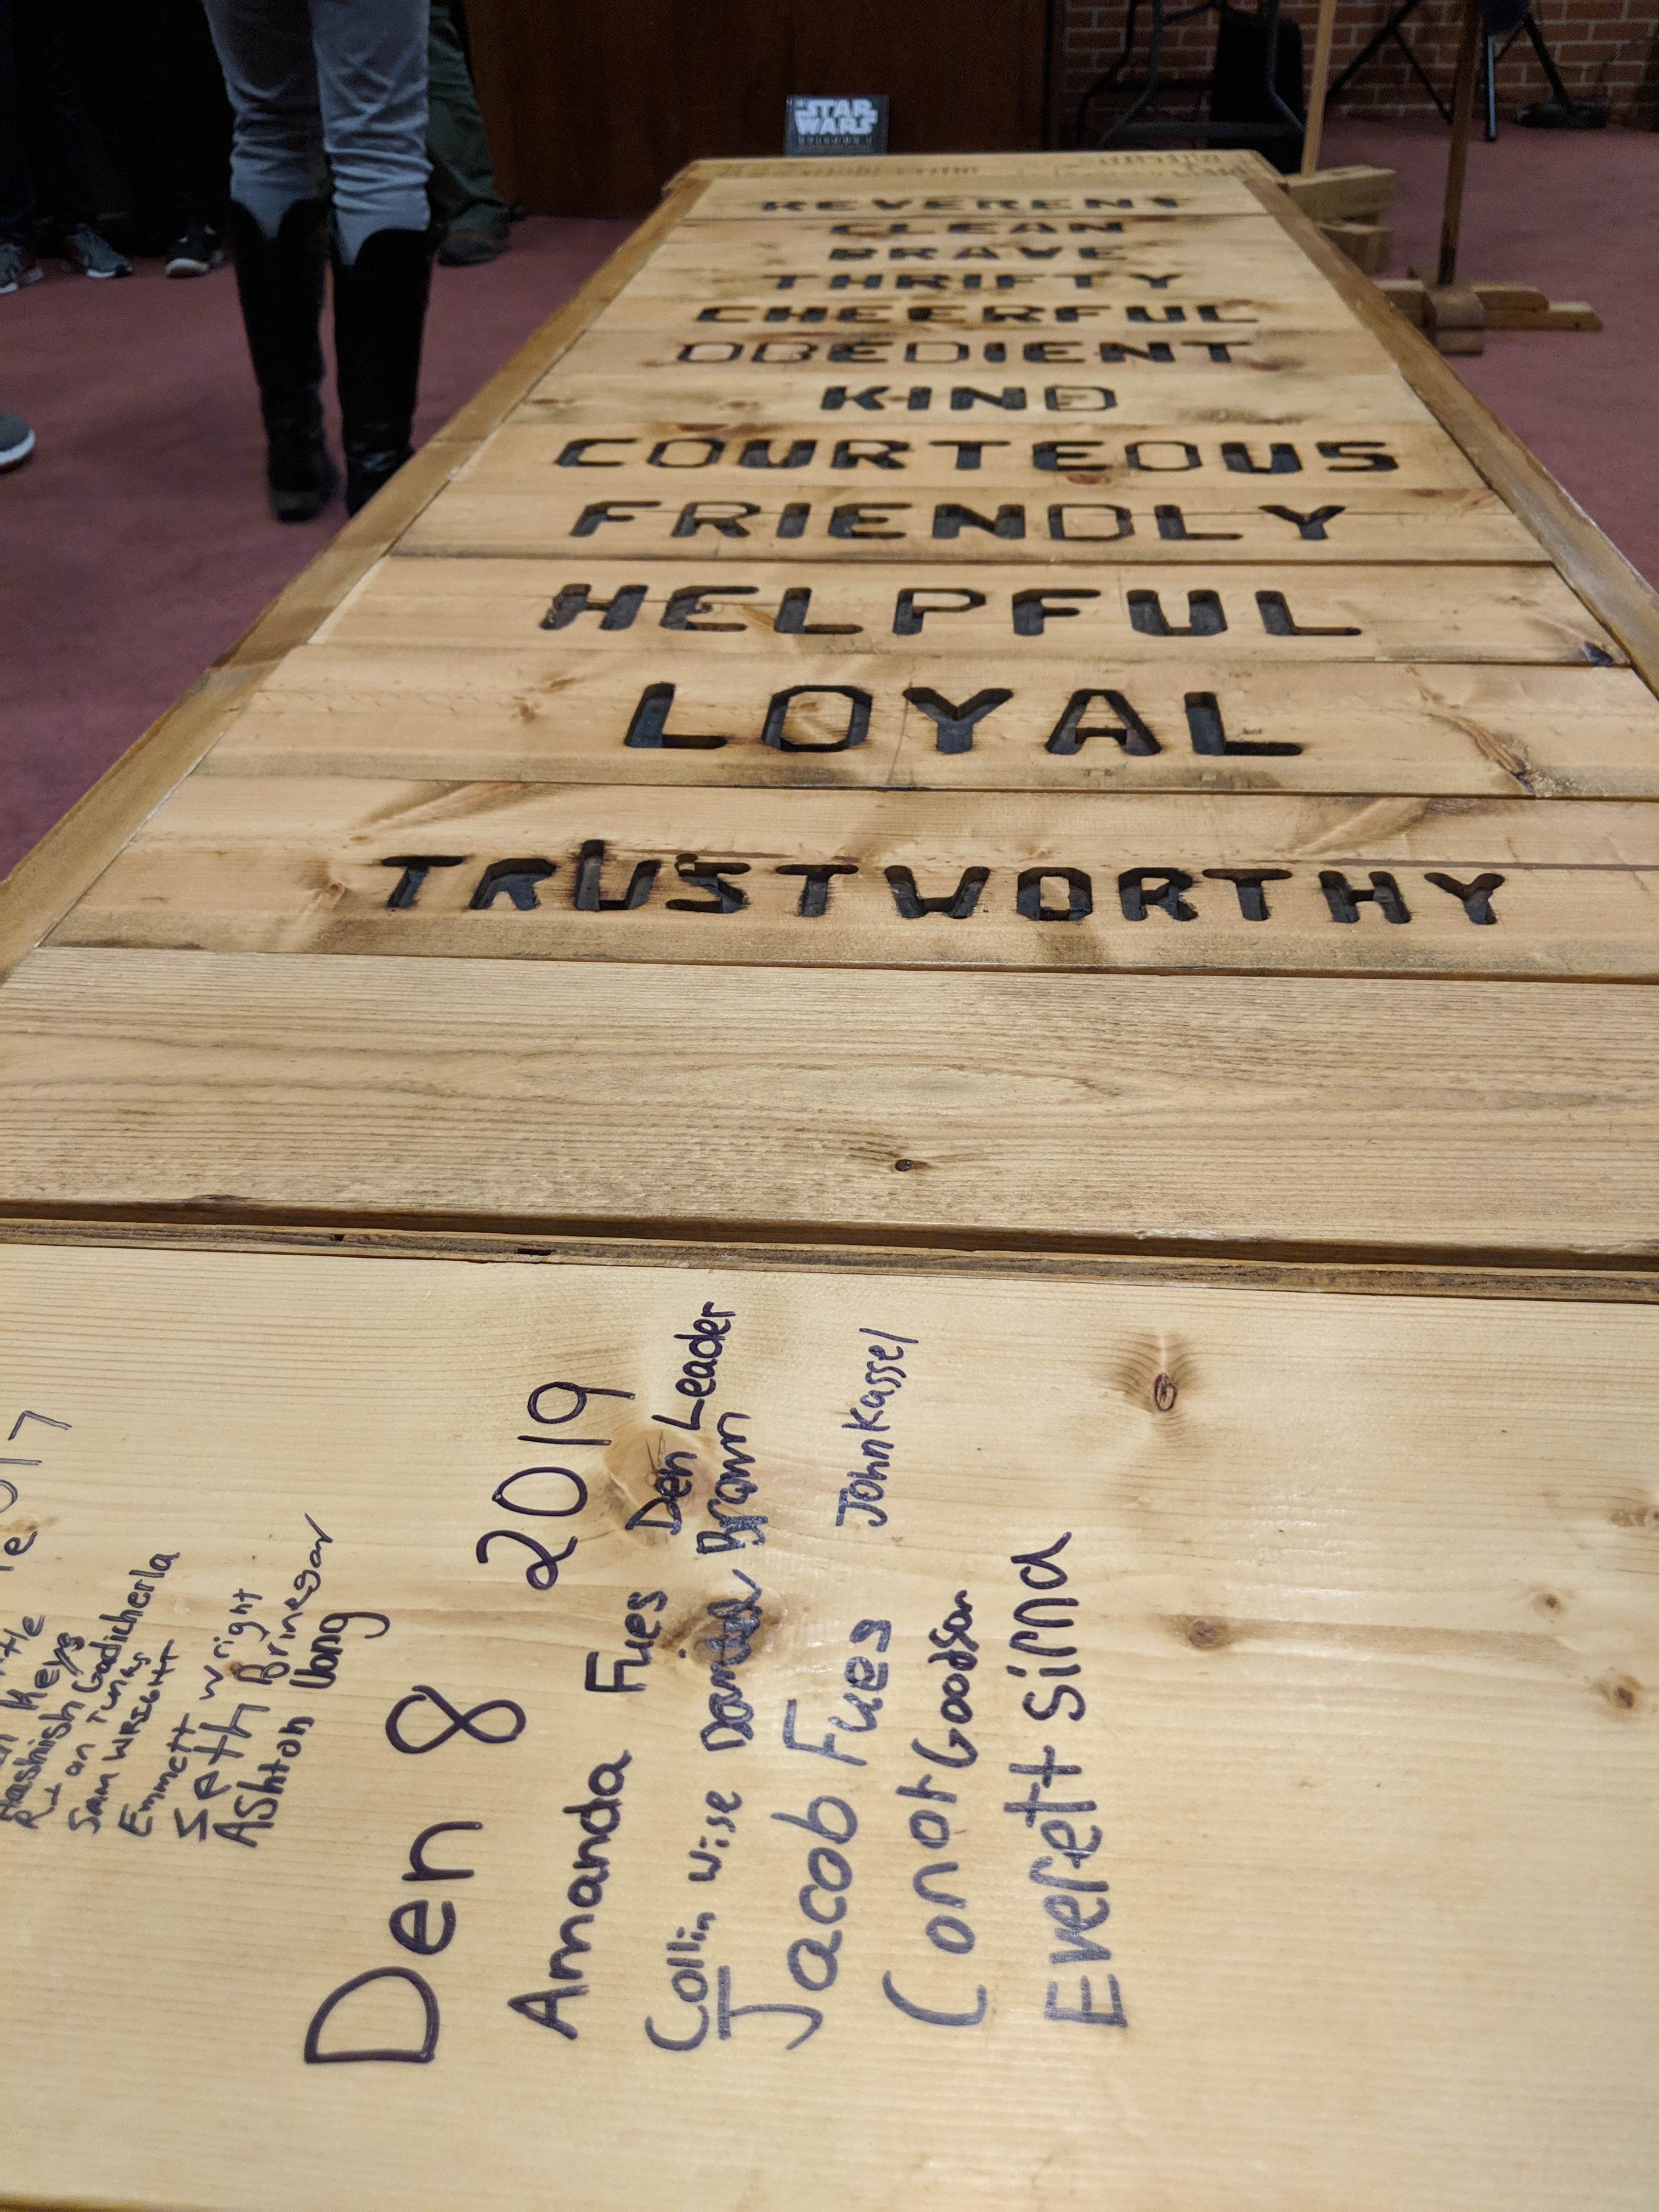 STAR
WARS
REVERENT
CLEAN
BRAVE
THRIFTY
CHEERFUL
OBEDIENT
KIND
COURTEOUS
FRIENDLY
HELPFUL
LOYAL
TRUSTWORTHY
Keys
Gadicherla
Sam
Emmett Wright
Seth Brinegar
Ashton Vong
Den 8 2019
Amanda Fues Den Leader
Collin wise Daniel Brown
Jacob Fues John Kassel
Conor Goodson
Everett sima